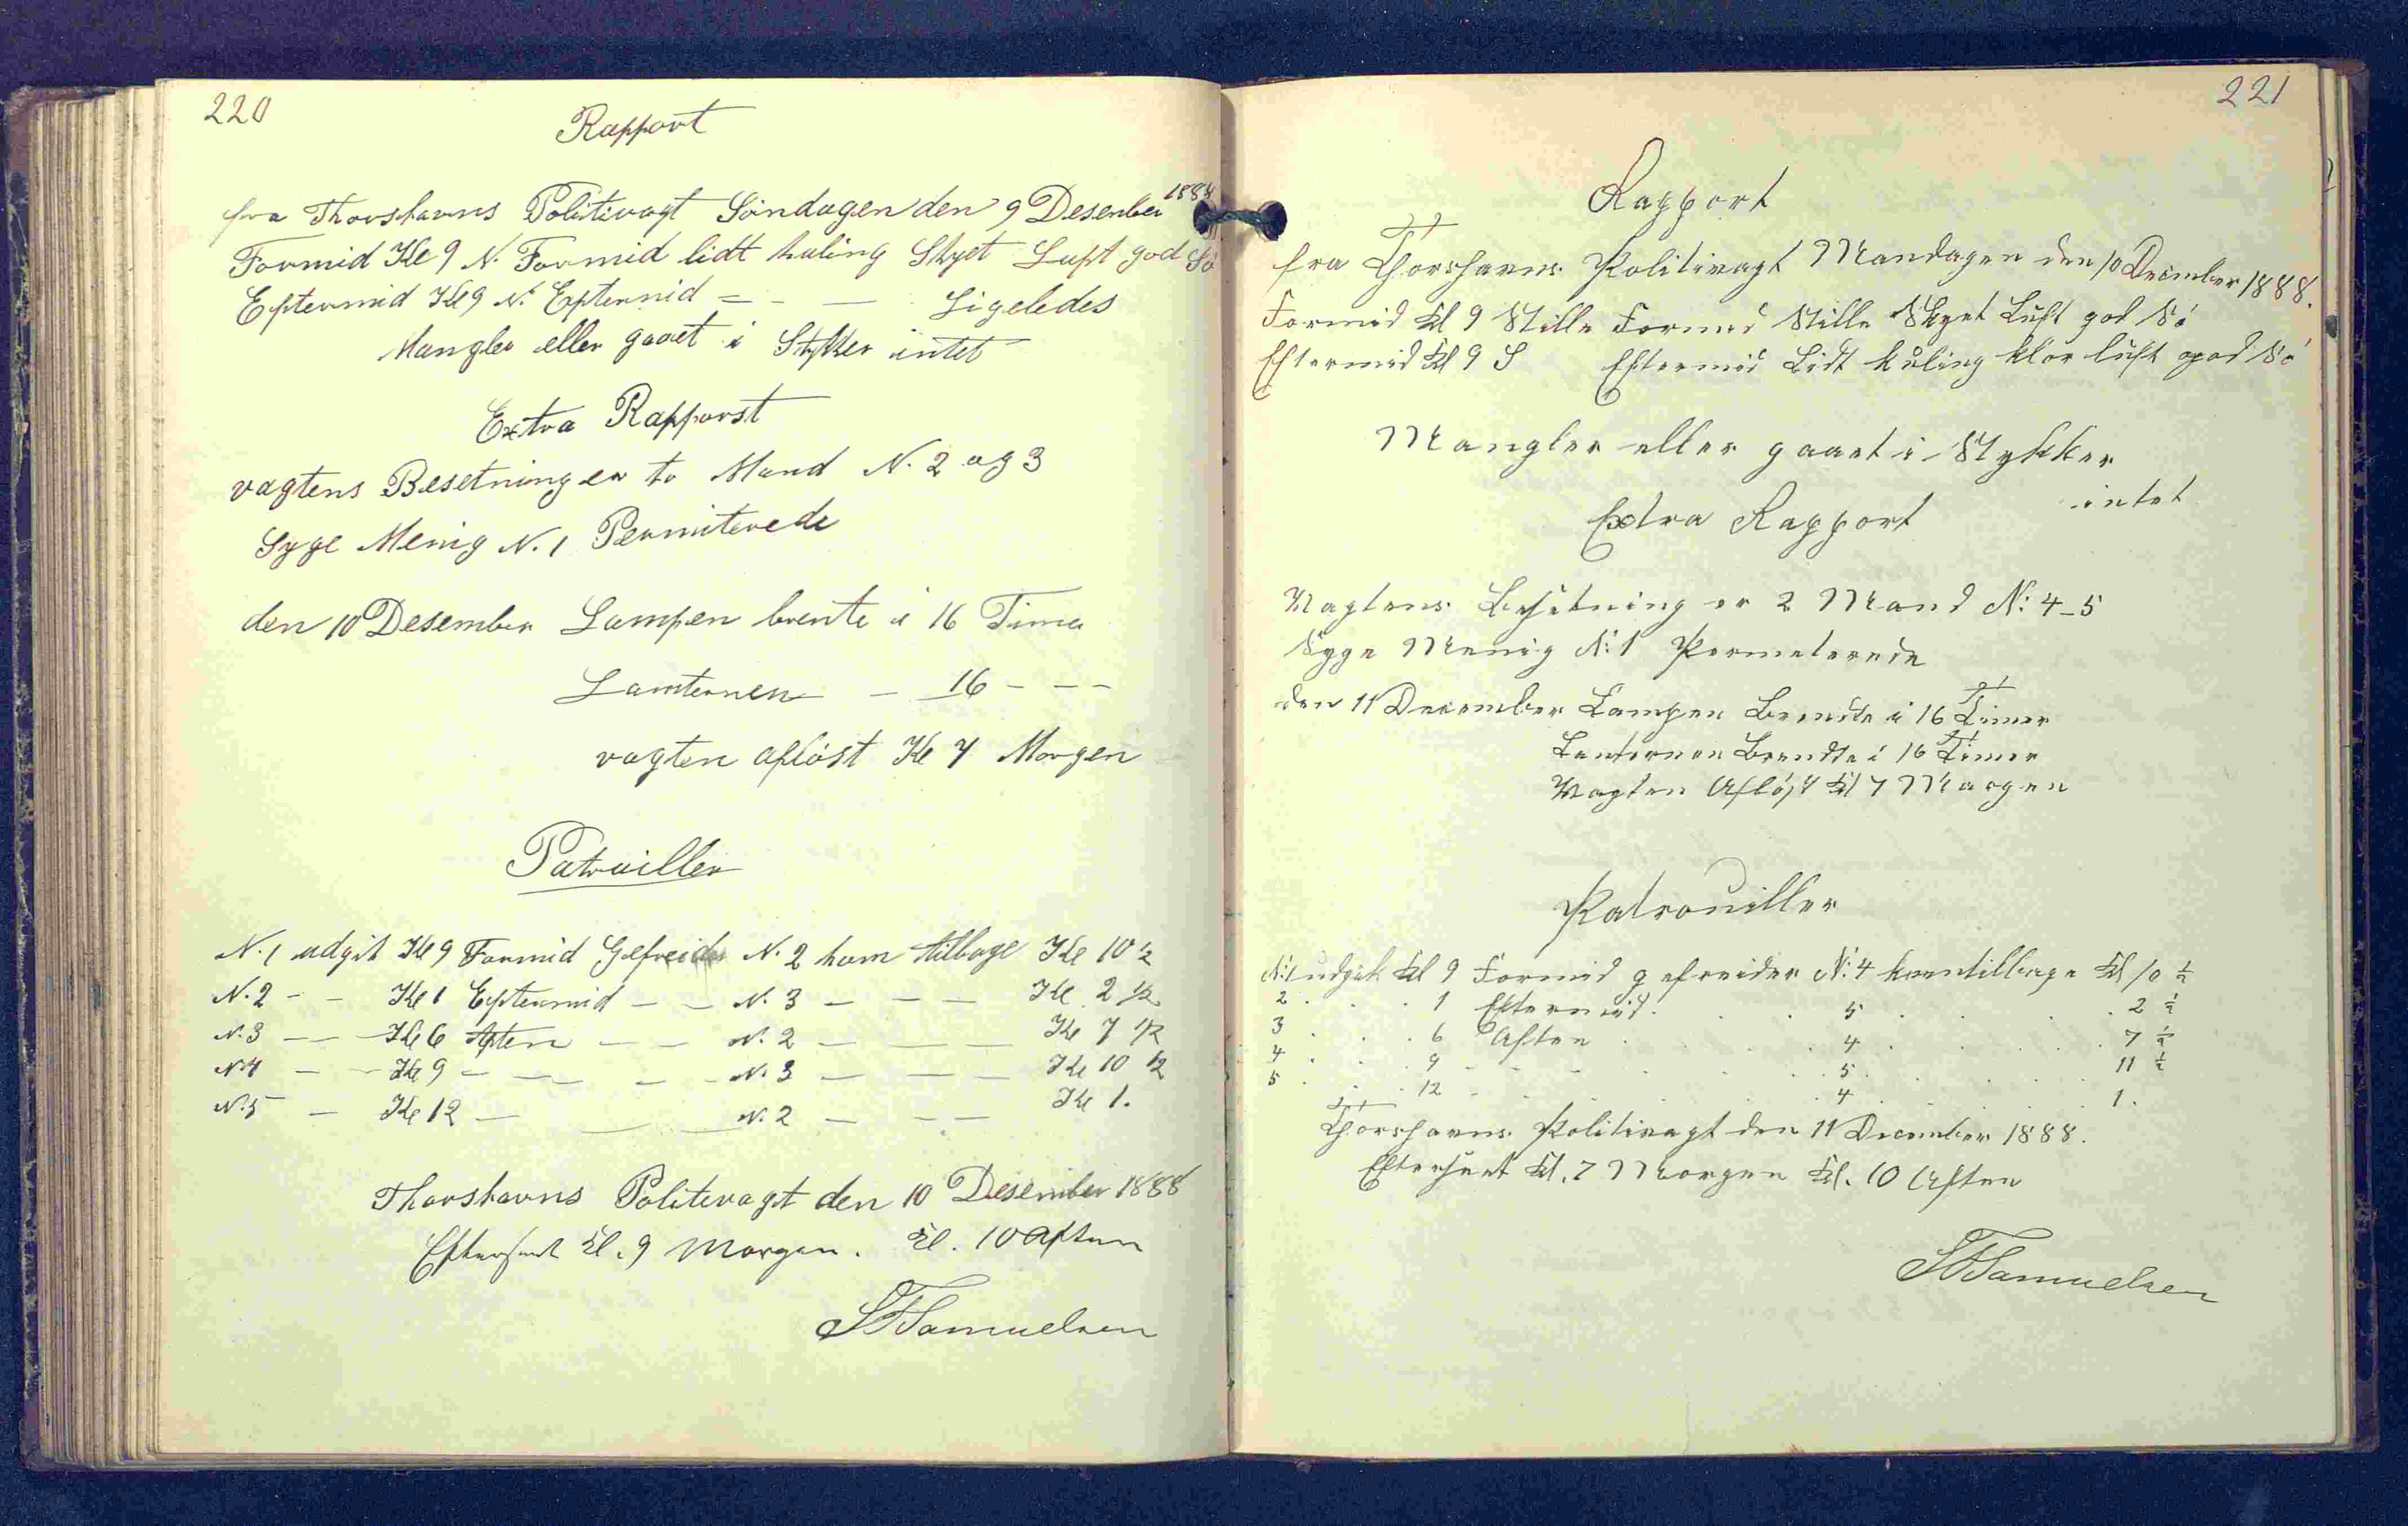 220
Rapport
fra Thorshavns Politivagt Söndagen den 9 Desember 1888
Formid Kl 9 N. Formid lidt kuling Skyet Luft god Sö
Eftermid Kl 9 N. Eftermid = - — Ligeledes
Mangler eller gaaet i Stykker intet
Extra Rapporst
vagtens Besetning er to Mand N. 2 og 3
Syge Menig N. 1 Permiterede
den 10 Desember Lampen brente i 16 Timer
Lanternen — 16 - - -
vagten aflöst Kl 7 Morgen
Patruiller
N. 1 udgik Kl 9 Formid Gefreider N. 2 kom tilbage Kl 10 ½
N. 2 - - Kl 1 Eftermid — — N. 3 — — — Kl 2 ½
N. 3 — — Kl 6 Aften — — N. 2 — — — Kl 7 ½
N. 4 — - Kl 9 — — — N. 3 — — — Kl 10 ½
N. 5 — Kl 12 — — — N. 2 — — — Kl 1.
Thorshavns Politivagt den 10 Desember 1888
Efterseet Kl. 9 Morgen. Kl. 10 Aften
Samuelsen
221
Rapport
fra Thorshavns Politivagt Mandagen den 10 December 1888.
Formid Kl 9 Stille Formid Stille Skyet Luft god Sö
Eftermid Kl 9 S Eftermid Lidt kuling klar luft god Sö
Mangler eller gaaet i Stykker
intet
Extra Rapport
Vagtens Besetning er 2 Mand N: 4-5
Syge Menig N: 1 Permeterede
den 11 December Lampen Brendte i 16 Timer
Lanternen Brendte i 16 Timer
Vagten Aflöst Kl 7 Morgen
Patrouiller
N: 1 udgik Kl 9 Formid gefreider N: 4 kom tilbage Kl 10 ½
2 . . . 1 Eftermid . . 5 . . . . 2 ½
3 . . . 6 Aften . . . 4 . . . . 7 ½
4 . . . 9 - - - . . 5 . . . . 11 ½
5 . . . 12 - . . . 4 . . . . 1.
Thorshavns Politivagt den 11 December 1888.
Efterseet Kl. 7 Morgen Kl. 10 Aften
Samuelsen